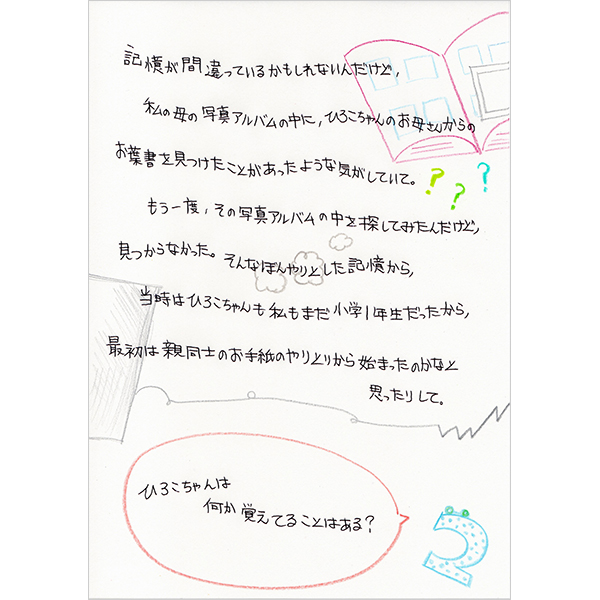 記憶が間違っているかもしれないんだけど,
私の母の写真アルバムの中に,ひろこちゃんのお母さんからの
お葉書を見つけたことがあったような気がしていて。
???
もう一度,その写真アルバムの中を探してみたんだけど,
見つからなかった。そんなぼんやりとした記憶から,
当時はひろこちゃんも私もまだ小学1年生だったから,
最初は親同士のお手紙のやりとりから始まったのかなと
思ったりして。
ひろこちゃんは
何か覚えてることはある?